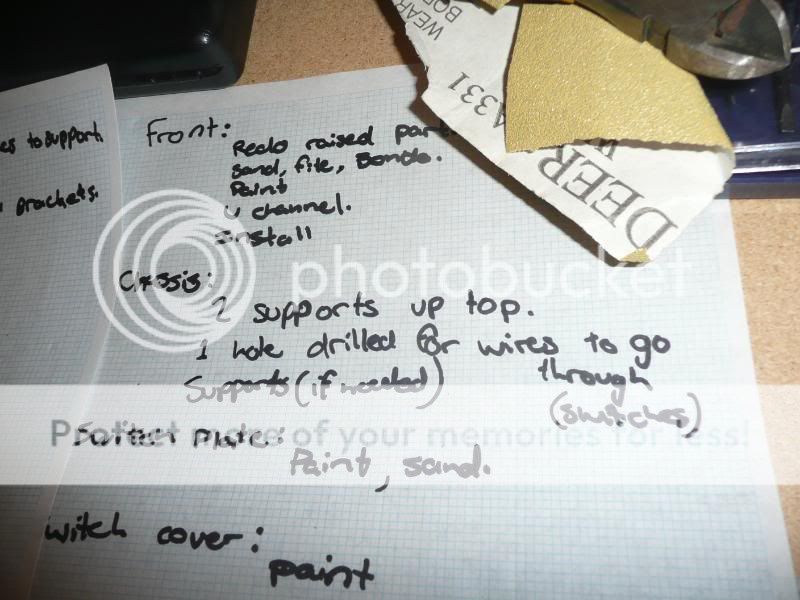 es to support.
brackets.
Front:
Redo raised part.
sand, file, Bondo.
Paint
U channel.
install
Chassis:
2 supports up top.
1 hole drilled for wires to go
through
Supports (if needed)
(switches)
Switch Plate:
Paint, sand.
witch cover:
paint
WEAR
BOD
A331
DEER
W
photobucket
Protect more of your memories for less!